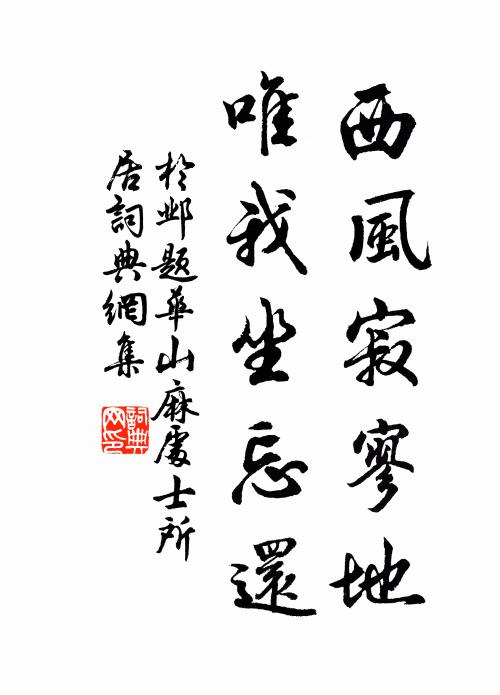 西風寂寥地
唯我坐忘還
於邺題華山麻處士所
居詞典網集
詞典
网印